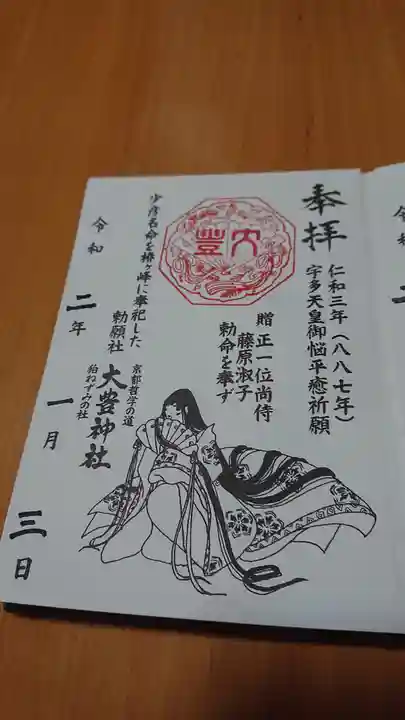 奉拝
仁和三年(八八七年)
宇多天皇御悩平癒祈願
贈正一位尚侍
藤原淑子
勅命を奉ず
少彦名命を椿ヶ峰に奉祀した
勅願社
京都哲学の道
大豊神社
狛ねずみの社
令和二年一月三日
令和